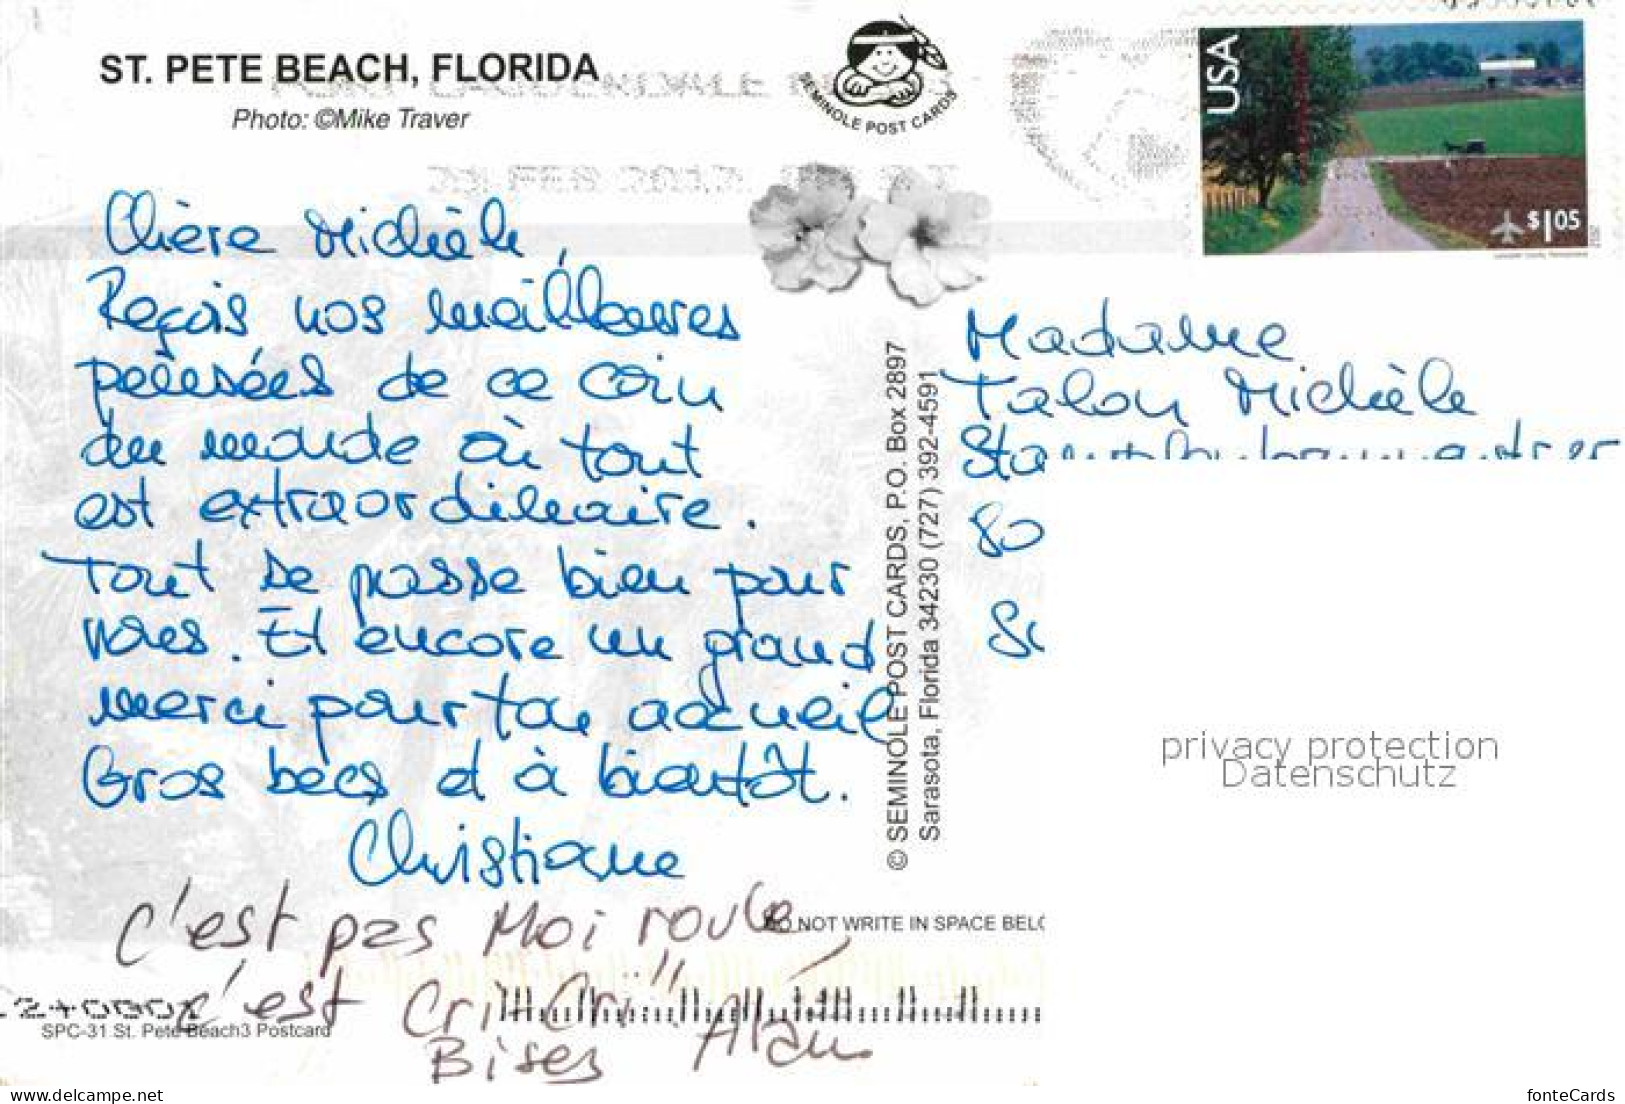 ST. PETE BEACH, FLORIDA
Photo: ©Mike Traver
SEMINOLE POST CARDS
FORT LAUDERDALE
FEB 2012
USA
$1.05
2012
Chère Michèle,
Reçois nos meilleures
pensées de ce coin
du monde où tout
est extraordinaire.
Tout se passe bien pour
nous. Et encore un grand
merci pour ton accueil
Gros becs et à bientôt.
Christiane
c'est pas Moi roule,
c'est Cri-Cri" !!
Bises Alain
© SEMINOLE POST CARDS, P.O. Box 2897
Sarasota, Florida 34230 (727) 392-4591
Madame
Talon Michèle
80
DO NOT WRITE IN SPACE BELO
SPC-31 St. Pete Beach3 Postcard
privacy protection
Datenschutz
www.delcampe.net
fonteCards